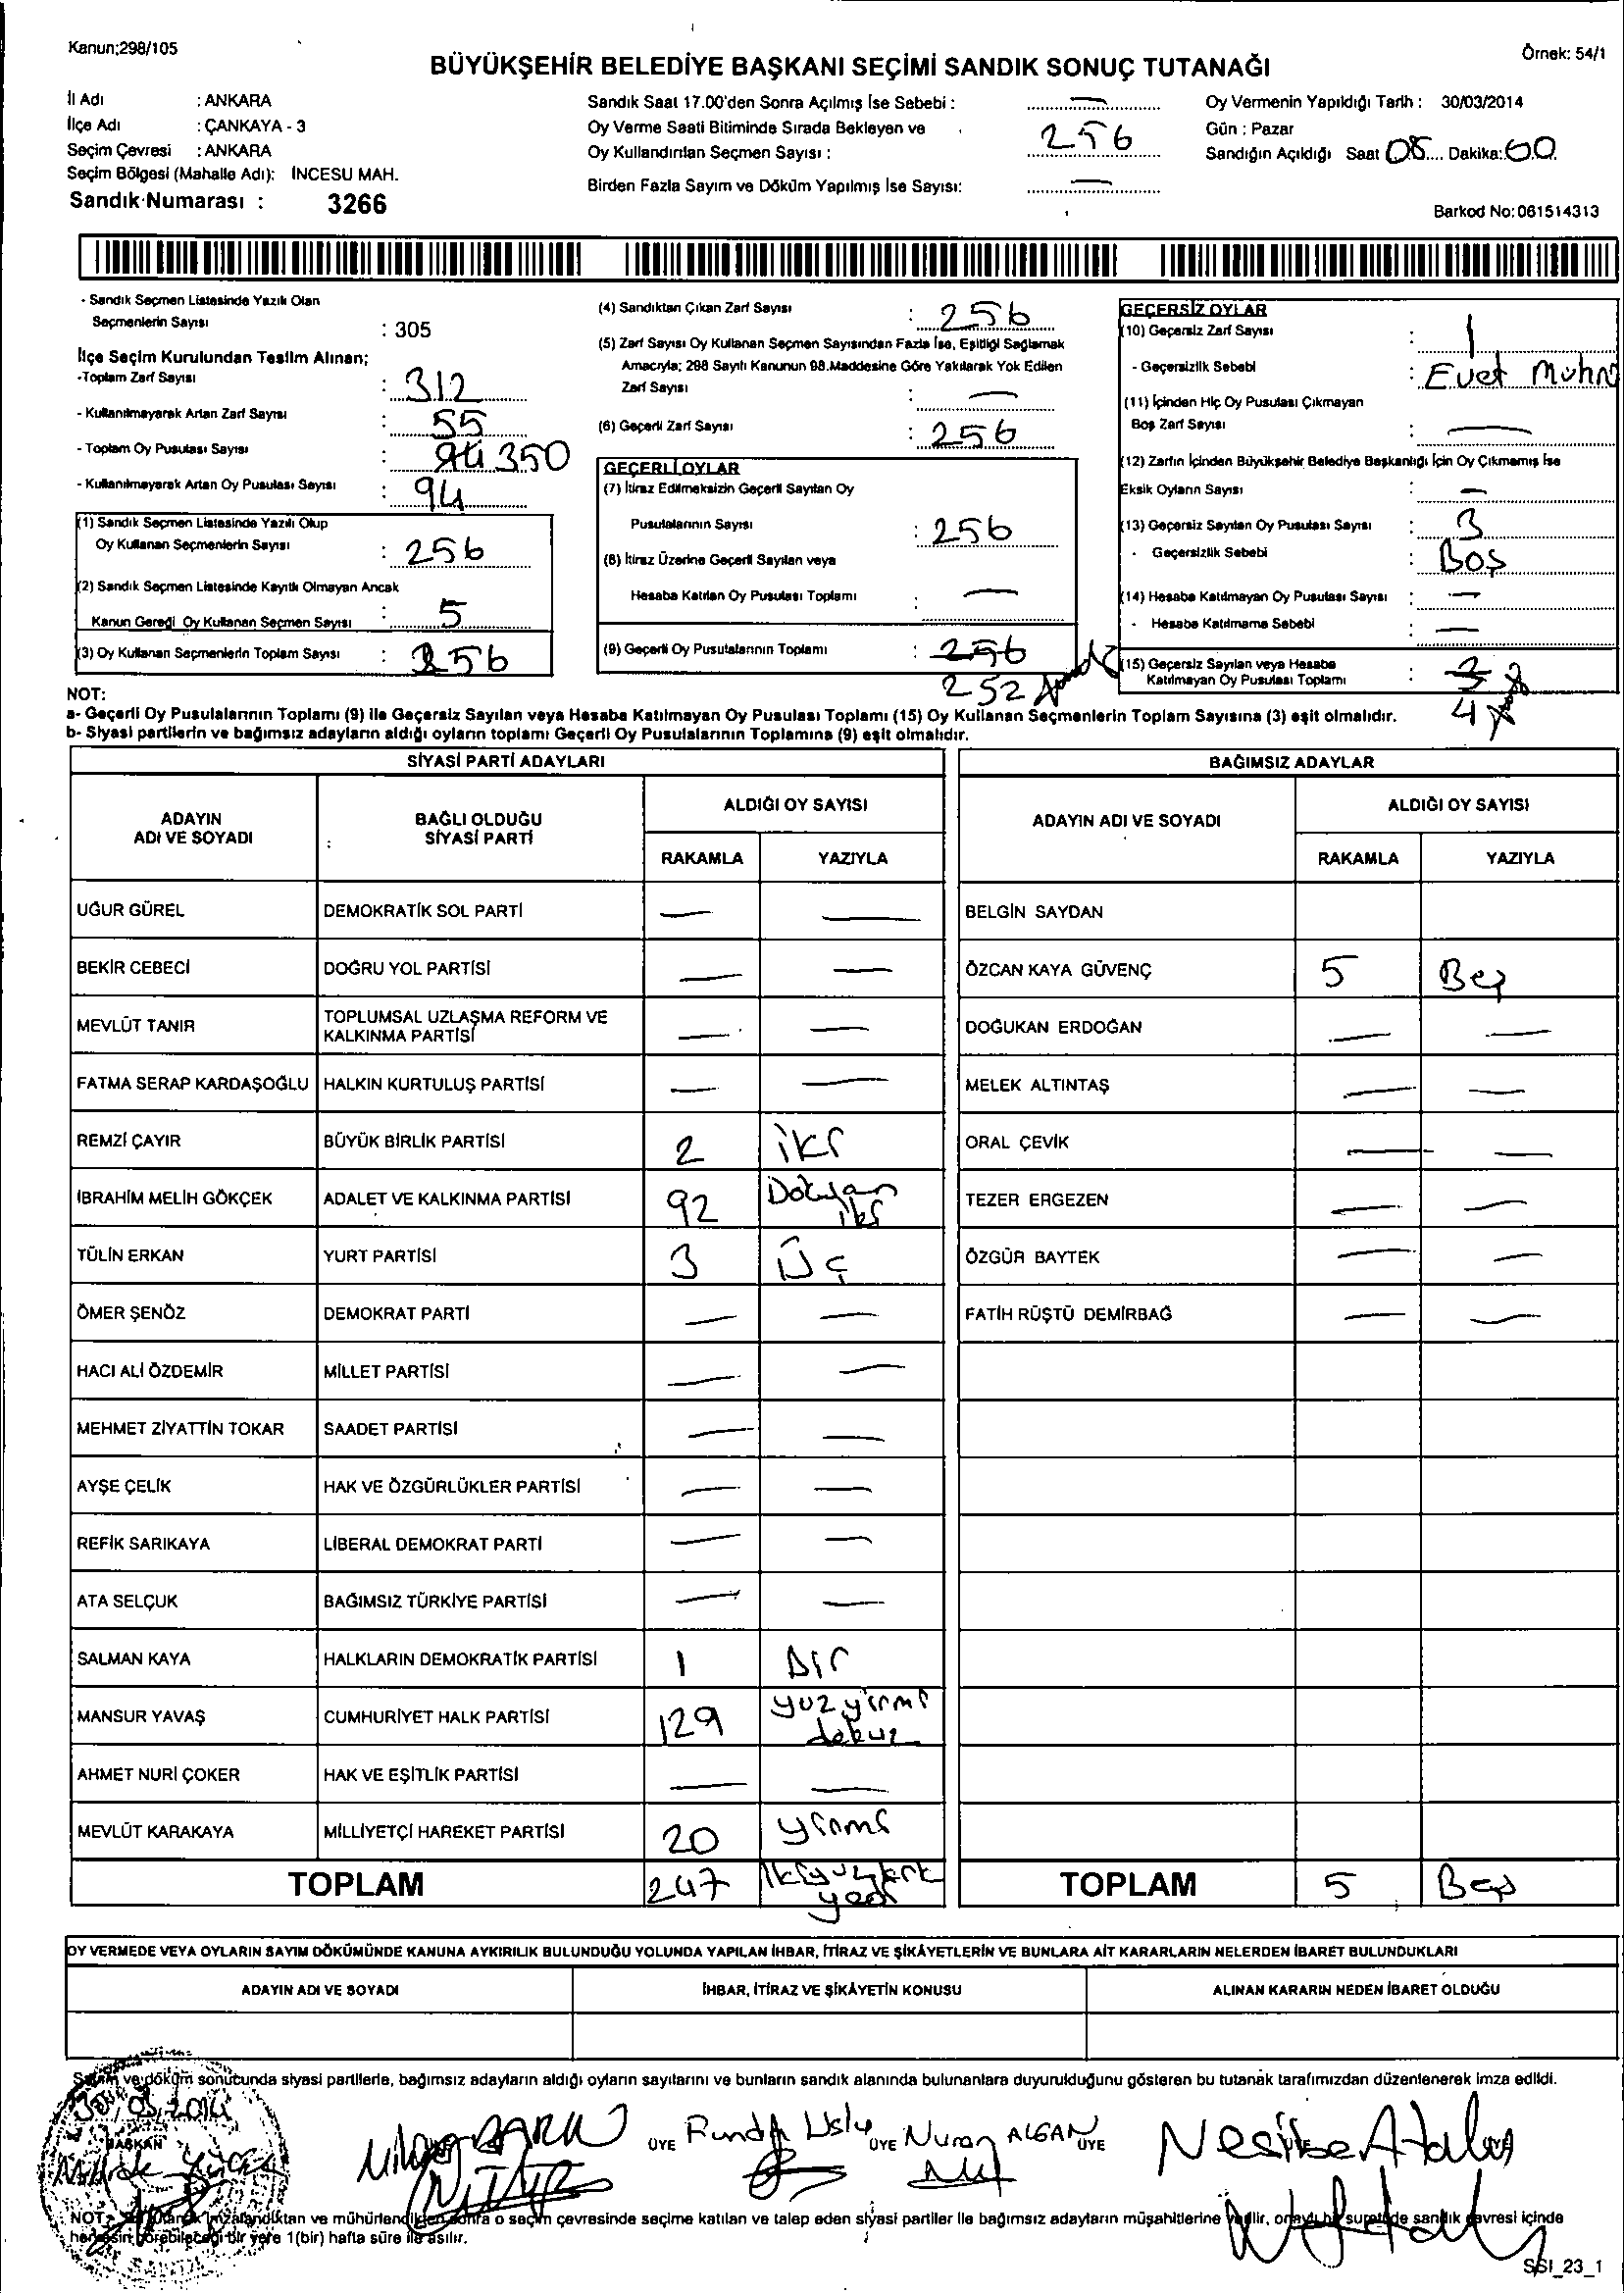 Kanun;298/105
Örnek: 54/1
BÜYÜKŞEHİR BELEDİYE BAŞKANI SEÇİMİ SANDIK SONUÇ TUTANAĞI
İl Adı : ANKARA
İlçe Adı : ÇANKAYA - 3
Seçim Çevresi : ANKARA
Seçim Bölgesi (Mahalle Adı): İNCESU MAH.
Sandık Numarası : 3266
Sandık Saat 17.00'den Sonra Açılmış İse Sebebi : —
Oy Verme Saati Bitiminde Sırada Bekleyen ve
Oy Kullandırılan Seçmen Sayısı : 256
Birden Fazla Sayım ve Döküm Yapılmış İse Sayısı: —
Oy Vermenin Yapıldığı Tarih : 30/03/2014
Gün : Pazar
Sandığın Açıldığı Saat 08 Dakika: 00
Barkod No:061514313
- Sandık Seçmen Listesinde Yazılı Olan
Seçmenlerin Sayısı : 305
İlçe Seçim Kurulundan Teslim Alınan;
-Toplam Zarf Sayısı : 312
- Kullanılmayarak Artan Zarf Sayısı : 55
- Toplam Oy Pusulası Sayısı : 350
- Kullanılmayarak Artan Oy Pusulası Sayısı : 94
(1) Sandık Seçmen Listesinde Yazılı Olup
Oy Kullanan Seçmenlerin Sayısı : 256
(2) Sandık Seçmen Listesinde Kayıtlı Olmayan Ancak
Kanun Gereği Oy Kullanan Seçmen Sayısı : 5
(3) Oy Kullanan Seçmenlerin Toplam Sayısı : 256
(4) Sandıktan Çıkan Zarf Sayısı : 256
(5) Zarf Sayısı Oy Kullanan Seçmen Sayısından Fazla İse, Eşitliği Sağlamak
Amacıyla; 298 Sayılı Kanunun 98.Maddesine Göre Yakılarak Yok Edilen
Zarf Sayısı : —
(6) Geçerli Zarf Sayısı : 256
GEÇERLİ OYLAR
(7) İtiraz Edilmeksizin Geçerli Sayılan Oy
Pusulalarının Sayısı : 256
(8) İtiraz Üzerine Geçerli Sayılan veya
Hesaba Katılan Oy Pusulası Toplamı : —
(9) Geçerli Oy Pusulalarının Toplamı : 256
252
GEÇERSİZ OYLAR
(10) Geçersiz Zarf Sayısı : 1
- Geçersizlik Sebebi : Evet Mühr
(11) İçinden Hiç Oy Pusulası Çıkmayan
Boş Zarf Sayısı : —
(12) Zarfın İçinden Büyükşehir Belediye Başkanlığı İçin Oy Çıkmamış İse
Eksik Oyların Sayısı : —
(13) Geçersiz Sayılan Oy Pusulası Sayısı : 3
- Geçersizlik Sebebi : Boş
(14) Hesaba Katılmayan Oy Pusulası Sayısı : —
- Hesaba Katılmama Sebebi : —
(15) Geçersiz Sayılan veya Hesaba
Katılmayan Oy Pusulası Toplamı : 3
4
NOT:
a- Geçerli Oy Pusulalarının Toplamı (9) ile Geçersiz Sayılan veya Hesaba Katılmayan Oy Pusulası Toplamı (15) Oy Kullanan Seçmenlerin Toplam Sayısına (3) eşit olmalıdır.
b- Siyasi partilerin ve bağımsız adayların aldığı oyların toplamı Geçerli Oy Pusulalarının Toplamına (9) eşit olmalıdır.
SİYASİ PARTİ ADAYLARI
ADAYIN ADI VE SOYADI
BAĞLI OLDUĞU SİYASİ PARTİ
ALDIĞI OY SAYISI
RAKAMLA YAZIYLA
UĞUR GÜREL DEMOKRATİK SOL PARTİ — —
BEKİR CEBECİ DOĞRU YOL PARTİSİ — —
MEVLÜT TANIR TOPLUMSAL UZLAŞMA REFORM VE KALKINMA PARTİSİ — —
FATMA SERAP KARDAŞOĞLU HALKIN KURTULUŞ PARTİSİ — —
REMZİ ÇAYIR BÜYÜK BİRLİK PARTİSİ 2 iki
İBRAHİM MELİH GÖKÇEK ADALET VE KALKINMA PARTİSİ 92 Doksan iki
TÜLİN ERKAN YURT PARTİSİ 3 Üç
ÖMER ŞENÖZ DEMOKRAT PARTİ — —
HACI ALİ ÖZDEMİR MİLLET PARTİSİ — —
MEHMET ZİYATTİN TOKAR SAADET PARTİSİ — —
AYŞE ÇELİK HAK VE ÖZGÜRLÜKLER PARTİSİ — —
REFİK SARIKAYA LİBERAL DEMOKRAT PARTİ — —
ATA SELÇUK BAĞIMSIZ TÜRKİYE PARTİSİ — —
SALMAN KAYA HALKLARIN DEMOKRATİK PARTİSİ 1 Bir
MANSUR YAVAŞ CUMHURİYET HALK PARTİSİ 129 yüz yirmi dokuz
AHMET NURİ ÇOKER HAK VE EŞİTLİK PARTİSİ — —
MEVLÜT KARAKAYA MİLLİYETÇİ HAREKET PARTİSİ 20 yirmi
TOPLAM 247 ikiyüzkırk yedi
BAĞIMSIZ ADAYLAR
ADAYIN ADI VE SOYADI
ALDIĞI OY SAYISI
RAKAMLA YAZIYLA
BELGİN SAYDAN
ÖZCAN KAYA GÜVENÇ 5 Beş
DOĞUKAN ERDOĞAN — —
MELEK ALTINTAŞ — —
ORAL ÇEVİK — —
TEZER ERGEZEN — —
ÖZGÜR BAYTEK — —
FATİH RÜŞTÜ DEMİRBAĞ — —
TOPLAM 5 Beş
OY VERMEDE VEYA OYLARIN SAYIM DÖKÜMÜNDE KANUNA AYKIRILIK BULUNDUĞU YOLUNDA YAPILAN İHBAR, İTİRAZ VE ŞİKÂYETLERİN VE BUNLARA AİT KARARLARIN NELERDEN İBARET BULUNDUKLARI
ADAYIN ADI VE SOYADI
İHBAR, İTİRAZ VE ŞİKÂYETİN KONUSU
ALINAN KARARIN NEDEN İBARET OLDUĞU
Sayım ve döküm sonucunda siyasi partilerle, bağımsız adayların aldığı oyların sayılarını ve bunların sandık alanında bulunanlara duyurulduğunu gösteren bu tutanak tarafımızdan düzenlenerek imza edildi.
30/03/2014
BAŞKAN
ÜYE Funda Uslu
ÜYE Nuran ALGAN
ÜYE Nesibe
NOT: imzalandıktan ve mühürlendikten sonra o seçim çevresinde seçime katılan ve talep eden siyasi partiler ile bağımsız adayların müşahitlerine verilir, onaylı bir suretide sandık çevresi içinde
herkesin görebileceği bir yere 1(bir) hafta süre ile asılır.
SSI_23_1